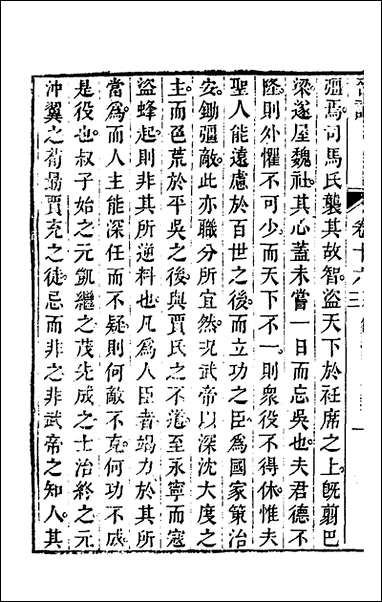 疆焉司馬氏襲其故智盜天下於衽席之上既翦巴
梁遂屋魏社其心蓋未嘗一日而忘吳也夫君德不
隆則外懼不可少而天下不一則衆役不得休惟夫
聖人能遠慮於百世之後而立功之臣爲國家策治
安鋤疆敵此亦職分所宜然况武帝以深沈大度之
主而色荒於平吳之後與賈氏之不道至永寧而寇
盜蜂起則非其所逆料也凡爲人臣者竭力於其所
當爲而人主能深任而不疑則何敵不克何功不成
是役也叔子始之元凱繼之茂先成之士治終之元
沖翼之荀勗賈充之徒忌而非之非武帝之知人其